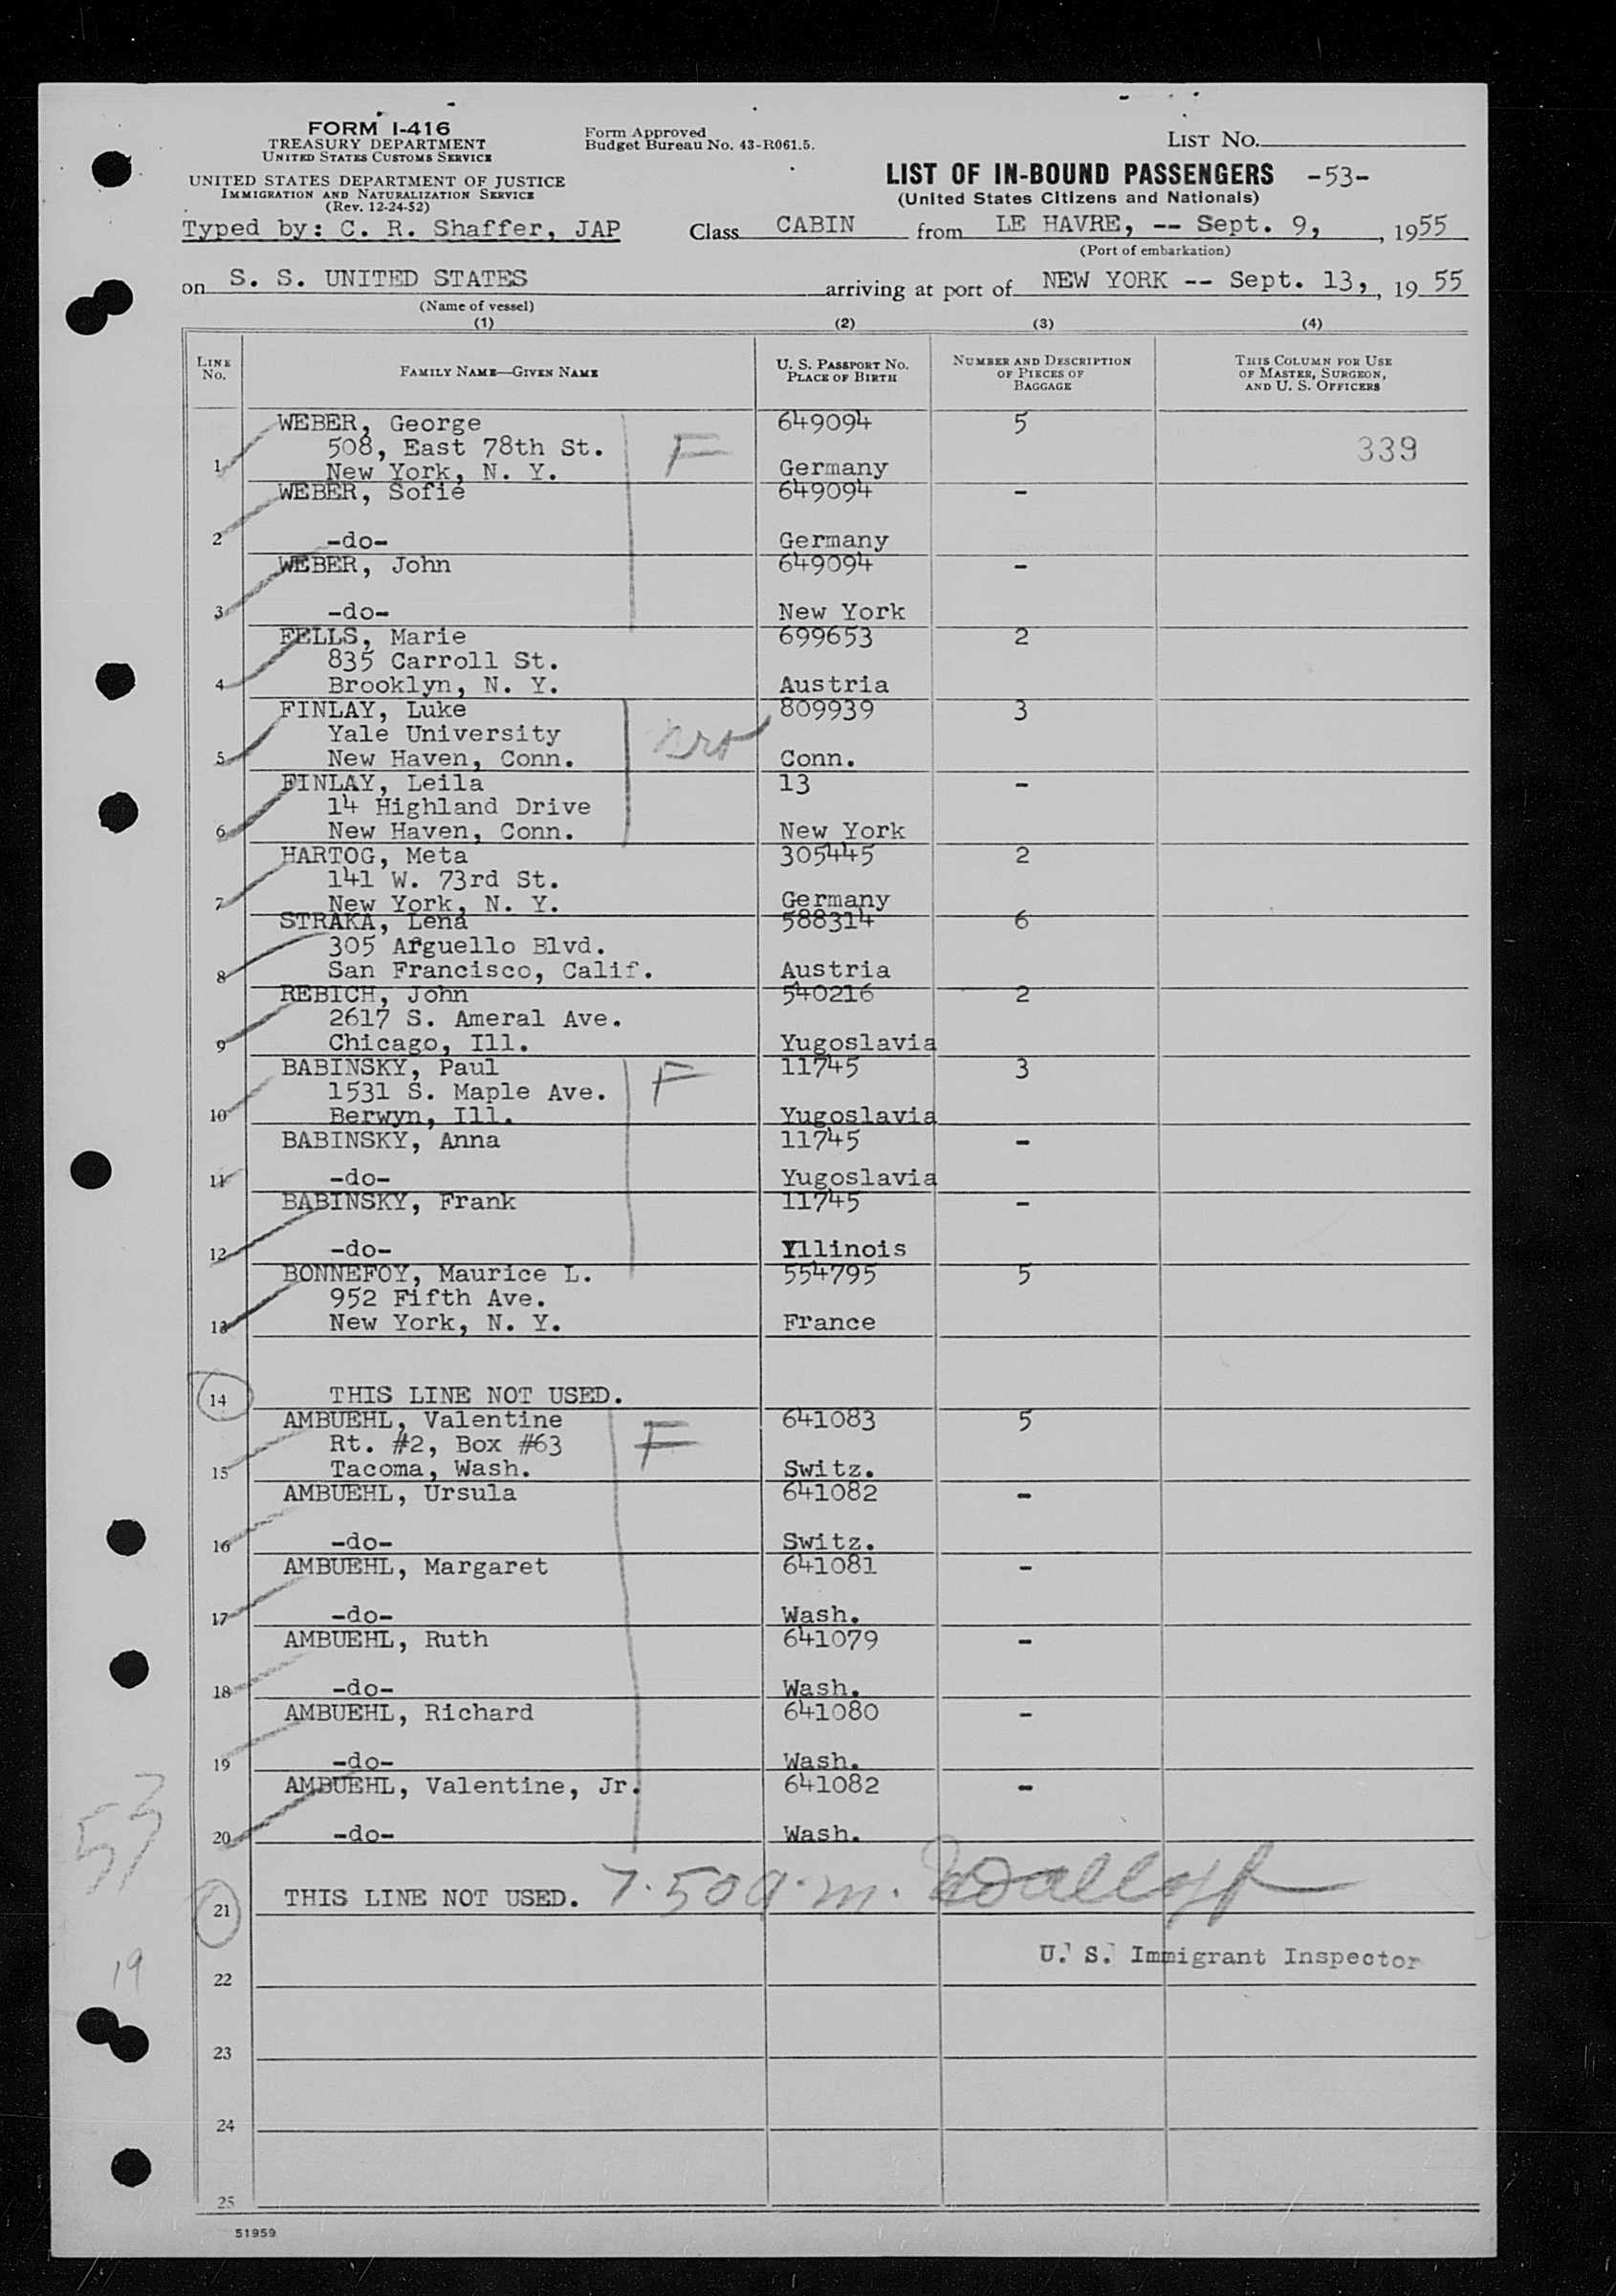 FORM I-416
TREASURY DEPARTMENT
UNITED STATES CUSTOMS SERVICE
UNITED STATES DEPARTMENT OF JUSTICE
IMMIGRATION AND NATURALIZATION SERVICE
(Rev. 12-24-52)
Form Approved
Budget Bureau No. 43-R061.5.
LIST NO.
LIST OF IN-BOUND PASSENGERS -53-
(United States Citizens and Nationals)
Typed by: C. R. Shaffer, JAP Class CABIN from LE HAVRE, -- Sept. 9, , 1955
(Port of embarkation)
on S. S. UNITED STATES arriving at port of NEW YORK -- Sept. 13, , 19 55
(Name of vessel)
(1) (2) (3) (4)
LINE NO. FAMILY NAME—GIVEN NAME U. S. PASSPORT NO. PLACE OF BIRTH NUMBER AND DESCRIPTION OF PIECES OF BAGGAGE THIS COLUMN FOR USE OF MASTER, SURGEON, AND U. S. OFFICERS
WEBER, George 649094 5
508, East 78th St. F 339
1 New York, N. Y. Germany
WEBER, Sofie 649094 -
2 -do- Germany
WEBER, John 649094 -
3 -do- New York
FELLS, Marie 699653 2
835 Carroll St.
4 Brooklyn, N. Y. Austria
FINLAY, Luke 809939 3
Yale University
5 New Haven, Conn. Conn.
FINLAY, Leila 13 -
14 Highland Drive
6 New Haven, Conn. New York
HARTOG, Meta 305445 2
141 W. 73rd St.
7 New York, N. Y. Germany
STRAKA, Lena 588314 6
305 Arguello Blvd.
8 San Francisco, Calif. Austria
REBICH, John 540216 2
2617 S. Ameral Ave.
9 Chicago, Ill. Yugoslavia
BABINSKY, Paul 11745 3
1531 S. Maple Ave. F
10 Berwyn, Ill. Yugoslavia
BABINSKY, Anna 11745 -
11 -do- Yugoslavia
BABINSKY, Frank 11745 -
12 -do- Yllinois
BONNEFOY, Maurice L. 554795 5
952 Fifth Ave.
13 New York, N. Y. France
14 THIS LINE NOT USED.
AMBUEHL, Valentine 641083 5
Rt. #2, Box #63 F
15 Tacoma, Wash. Switz.
AMBUEHL, Ursula 641082 -
16 -do- Switz.
AMBUEHL, Margaret 641081 -
17 -do- Wash.
AMBUEHL, Ruth 641079 -
18 -do- Wash.
AMBUEHL, Richard 641080 -
19 -do- Wash.
AMBUEHL, Valentine, Jr. 641082 -
20 -do- Wash.
53
21 THIS LINE NOT USED. 7.50 a.m.
U. S. Immigrant Inspector
19
22
23
24
25
51959